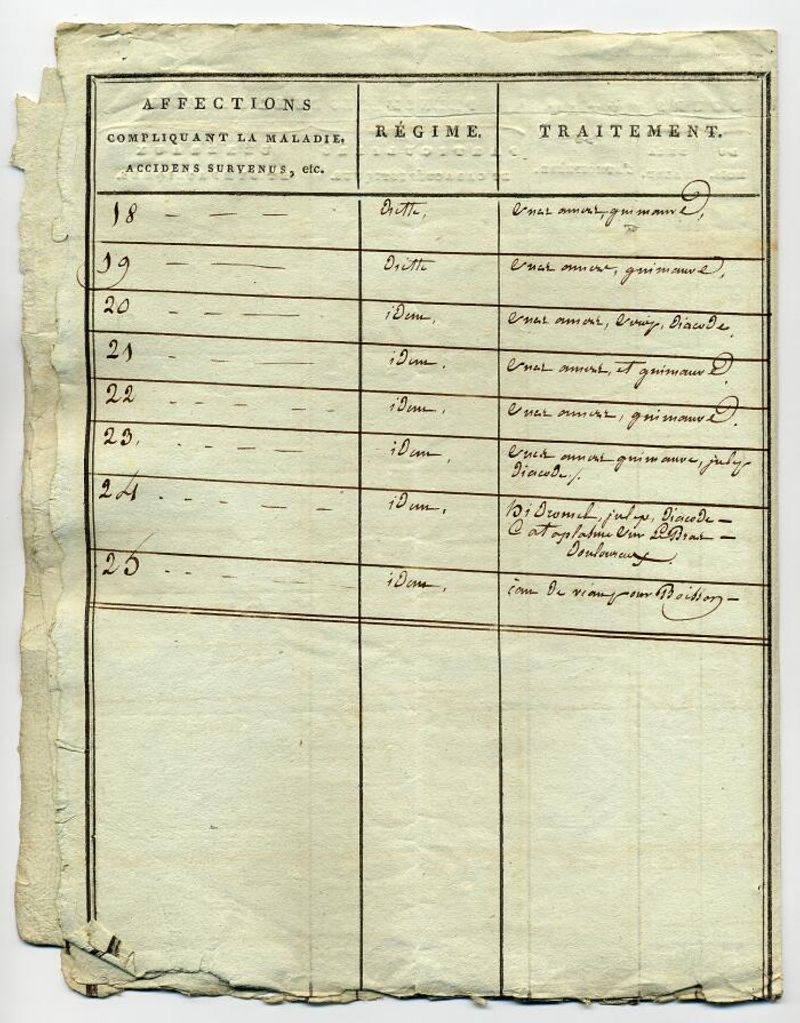 AFFECTIONS
COMPLIQUANT LA MALADIE,
ACCIDENS SURVENUS, etc.
RÉGIME.
TRAITEMENT.
18 — — — diette, amere, guimauve,
19 — — diette amere, guimauve,
20 - - — idem, amere, diacode
21 - — idem. amere, et guimauve
22 - - - - idem, amere, guimauve.
23, - - — — idem, amere guimauve, julep
diacode /.
24 - - - — — — idem, hidromel, julep, diacode —
Cataplasme sur le Bras —
douloureux.
25 - - - - - - idem, eau de pour Boisson —